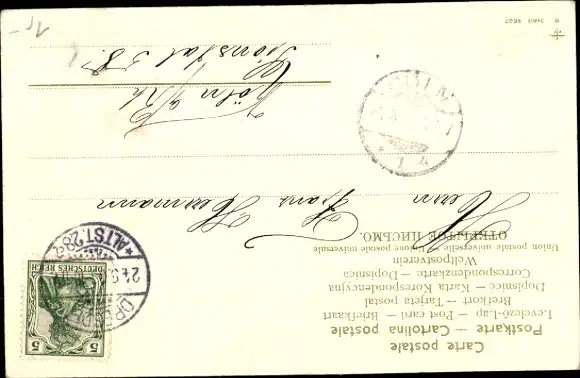 Carte postale
Postkarte — Cartolina postale
Levelező-Lap — Post card — Briefkaart
Brefkort — Tarjeta postal
Dopisnice — Karta Korespondencyjna
Correspondenzkarte — Dopisnica
Weltpostverein
Union postale universelle. Unione postale universale
ОТКРЫТОЕ ПИСЬМО.
5
DEUTSCHES REICH
DRESDEN
ALTST. 28
Herrn Hans Herrmann
Cöln a/Rh
CÖLN
1